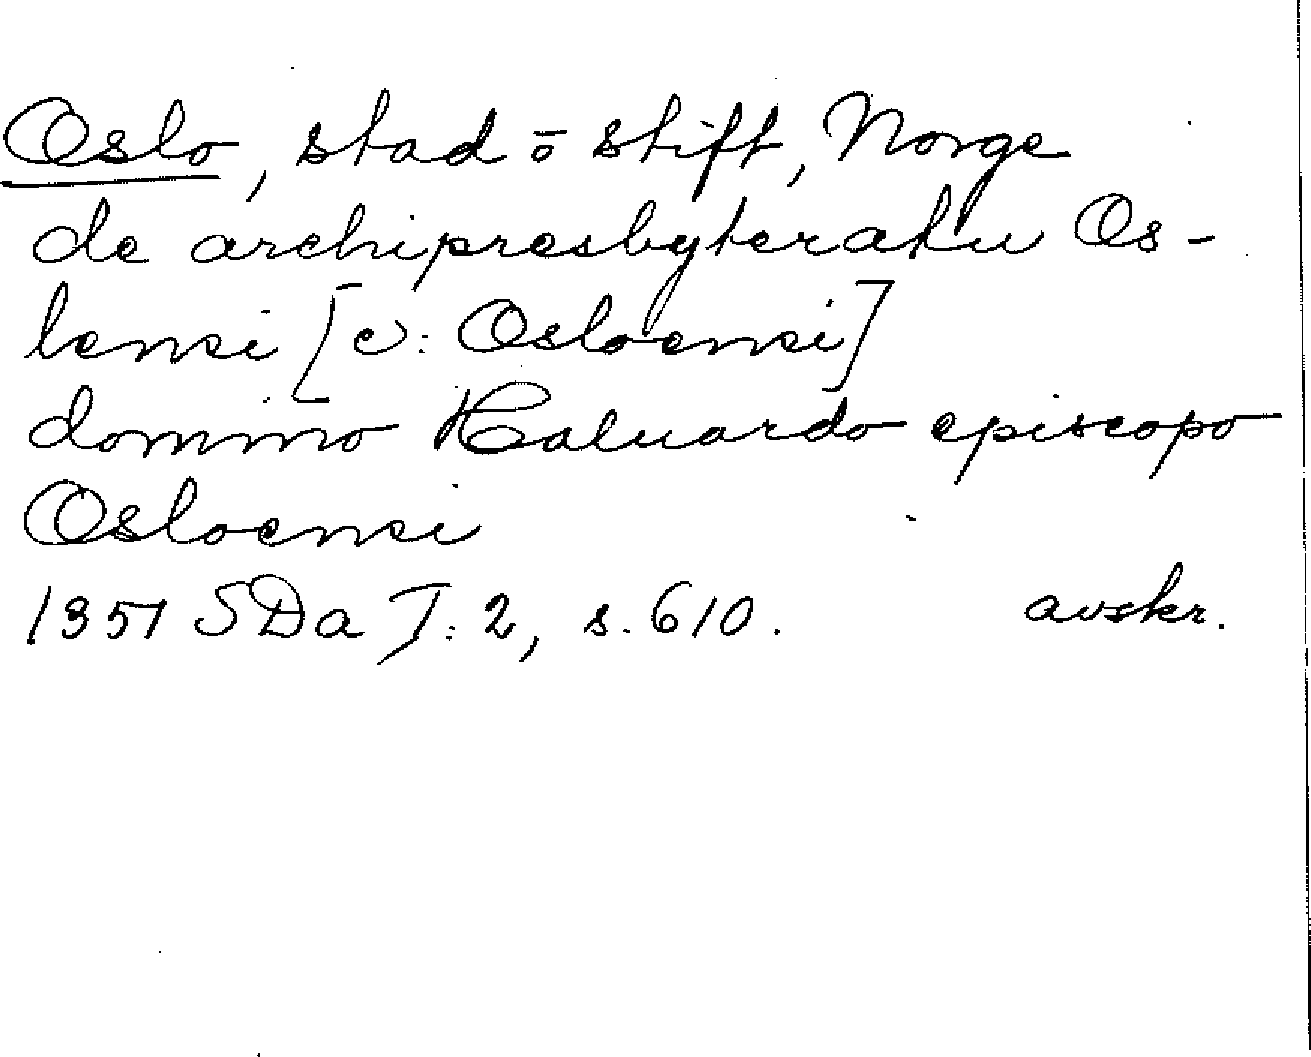 Oslo, stad ō stift, Norge
de archipresbyteratu Os-
lensi [ɔ: Osloensi]
domino Haluardo episcopo
Osloensi
1351 SDa I:2, s. 610. avskr.